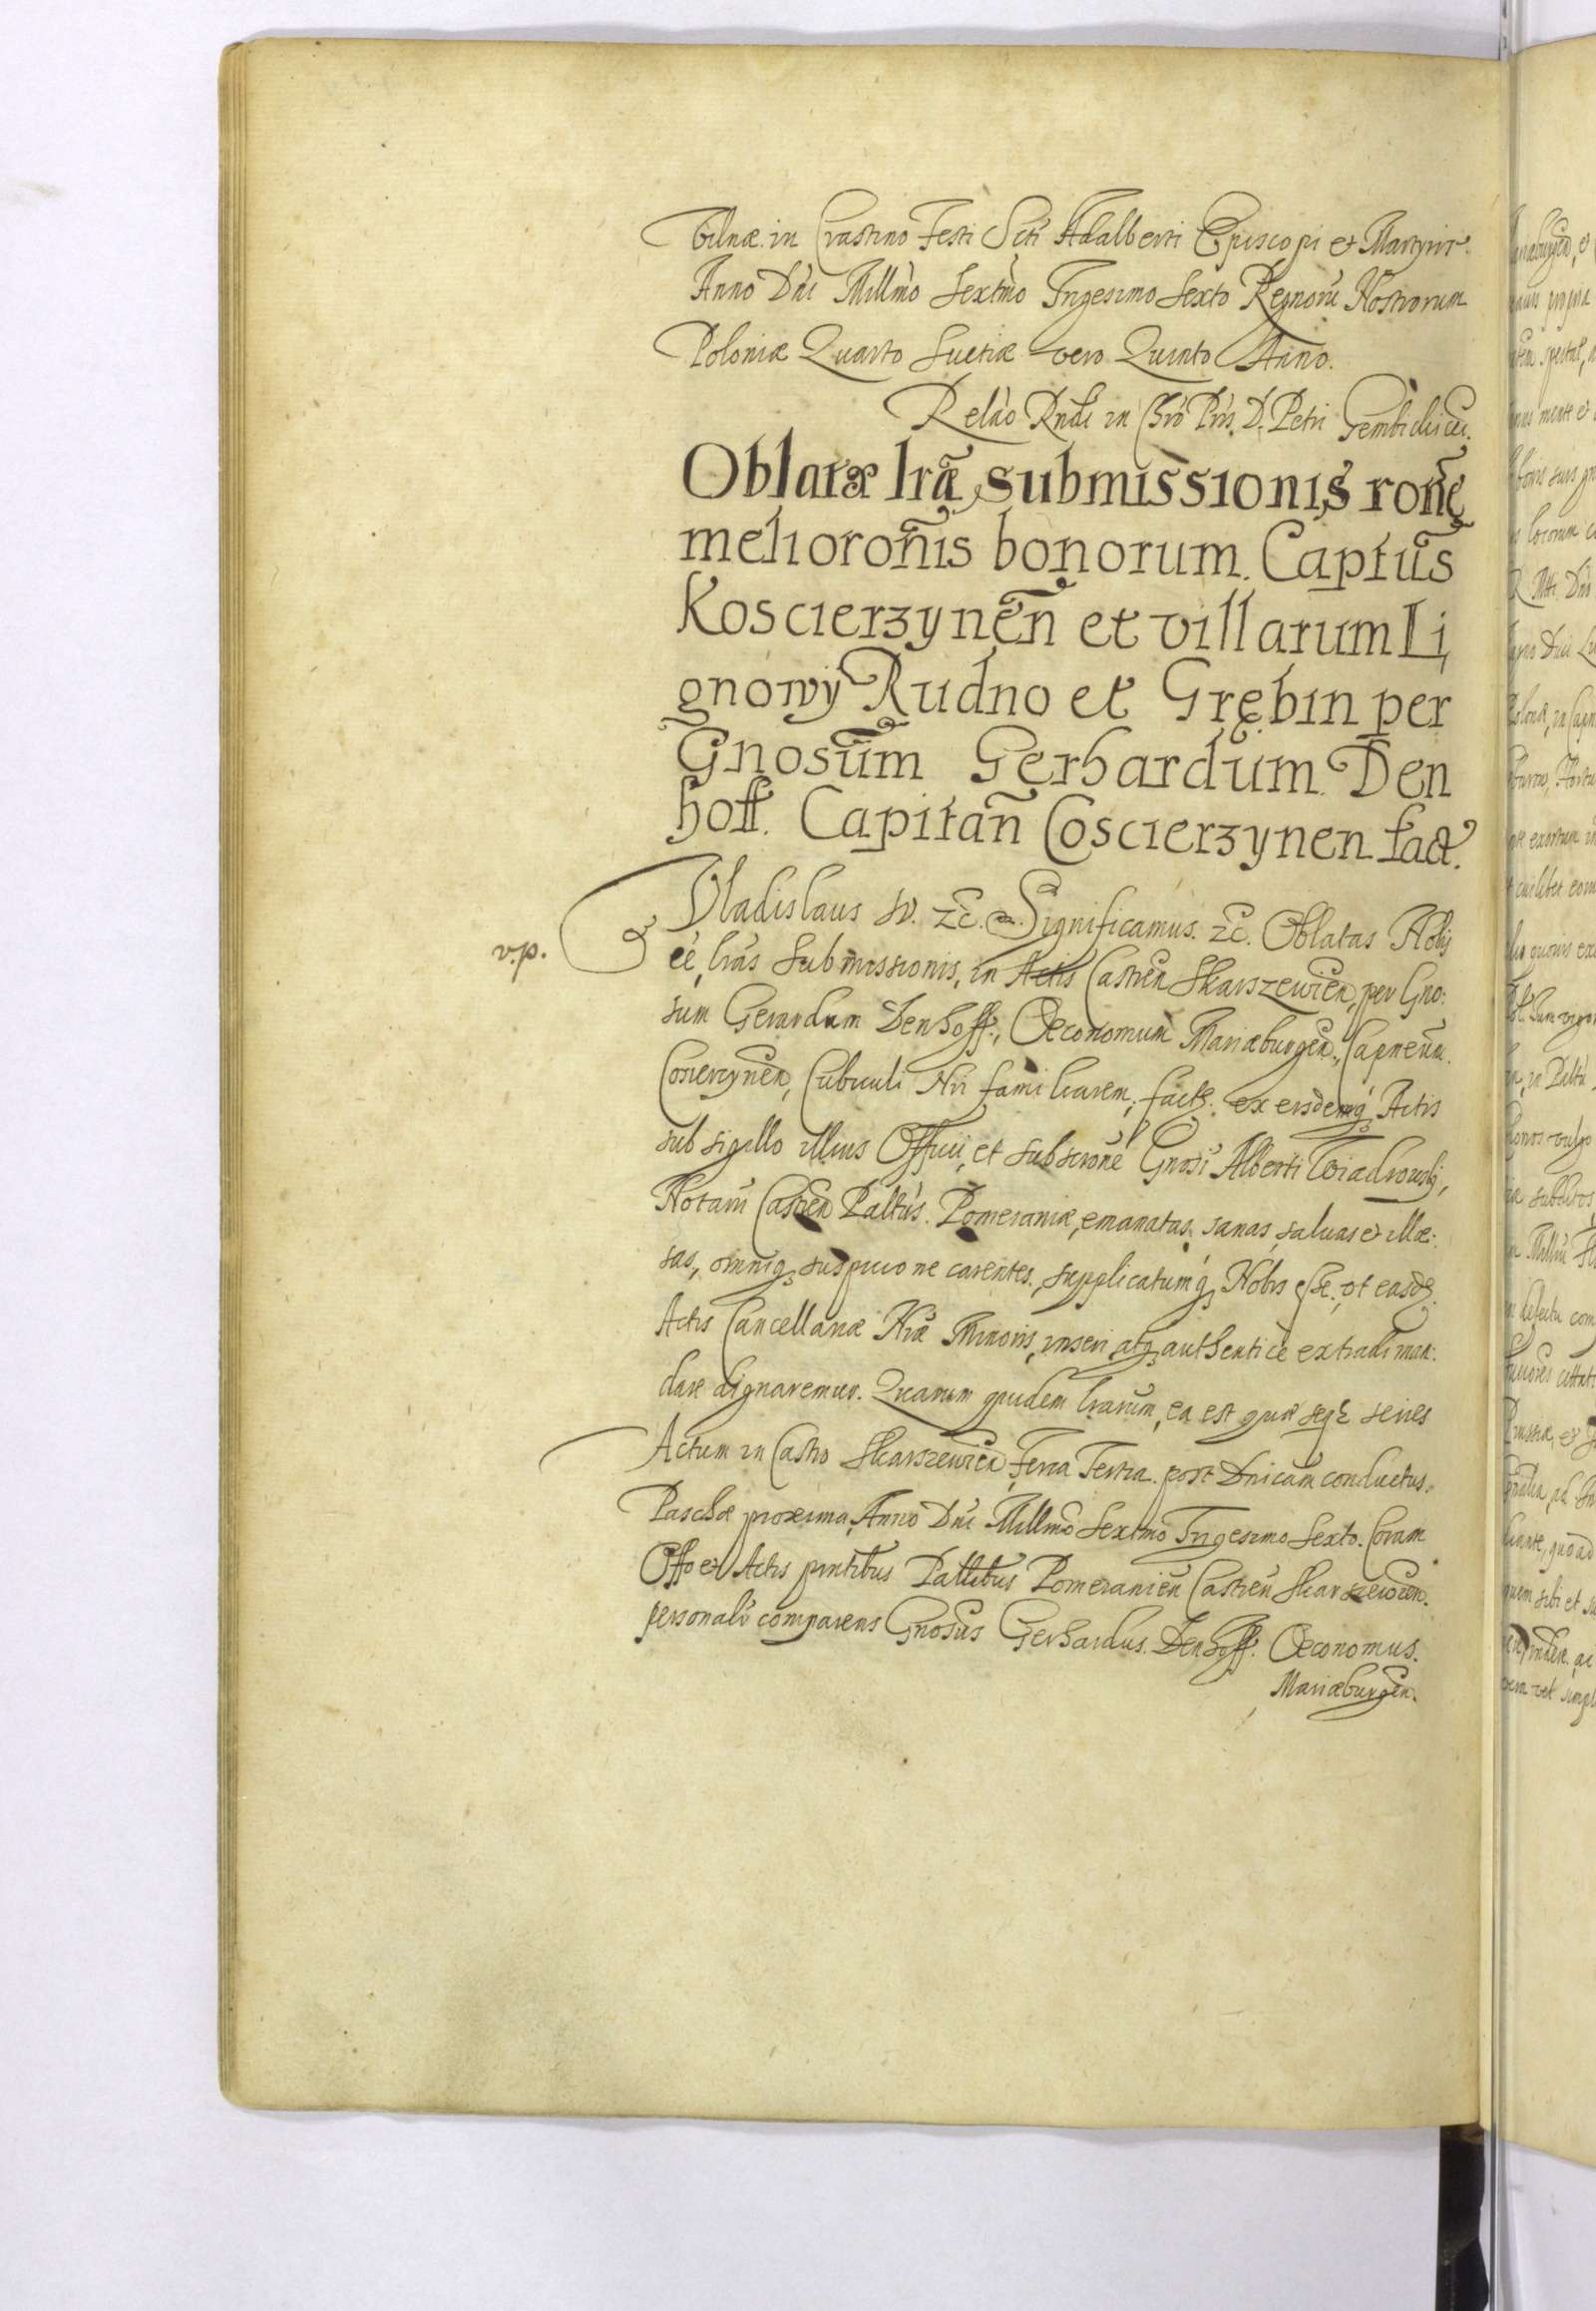 Vilnæ in Crastino Festi Scti Adalberti Episcopi et Martyris.
Anno Dni Millmo Sextmo Trigesimo Sexto Regnorũ Nostrorum
Poloniæ Quarto Suetiæ vero Quinto Anno.
Relão Rndi in Chrõ Pris D. Petri Gembickii &c.
Oblatæ lrã submissionis rone
meliorõnis bonorum Captũs
Koscierzynen̄ et villarum Li,
gnowy Rudno et Grębin per
Gnosũm Gerhardum Den
hoff. Capitañ Coscierzynen fact.
v.p.
Vladislaus IV. &c. Significamus. &c. Oblatas Nobis
ee, lrãs Submissionis, in Actis Castren Skarszewien, per Gno:
sum Gerardum Denhoff., Oeconomum Mariæburgen., Capneum
Coscierzynen, Cubiculi Nri familiarem, fact. ex eisdemq Actis
sub sigillo illius Officii, et subscrione Gnosi Alberti Wiadrowsky,
Notarii Castren Paltus. Pomeraniæ, emanatas, sanas, salvas et illæ:
sas, omniq suspicione carentes, supplicatumq Nobis esse, ut easd.
Actis Cancellariæ Nræ Minoris, inseri atq authenticè extradi man:
dare dignaremur. Quarum quidem lrarum, ea est quæ seqr series
Actum in Castro Skarszewien Feria Tertia. post Dnicam conductus.
Paschæ proxima, Anno Dni Millmo Sextmo Trigesimo Sexto. Coram
Offo et Actis pntibus Pallibus Pomeranien Castren Skarszewien.
personalr comparens Gnosus Gerhardus. Denhoff. Oeconomus.
Mariæburgen.